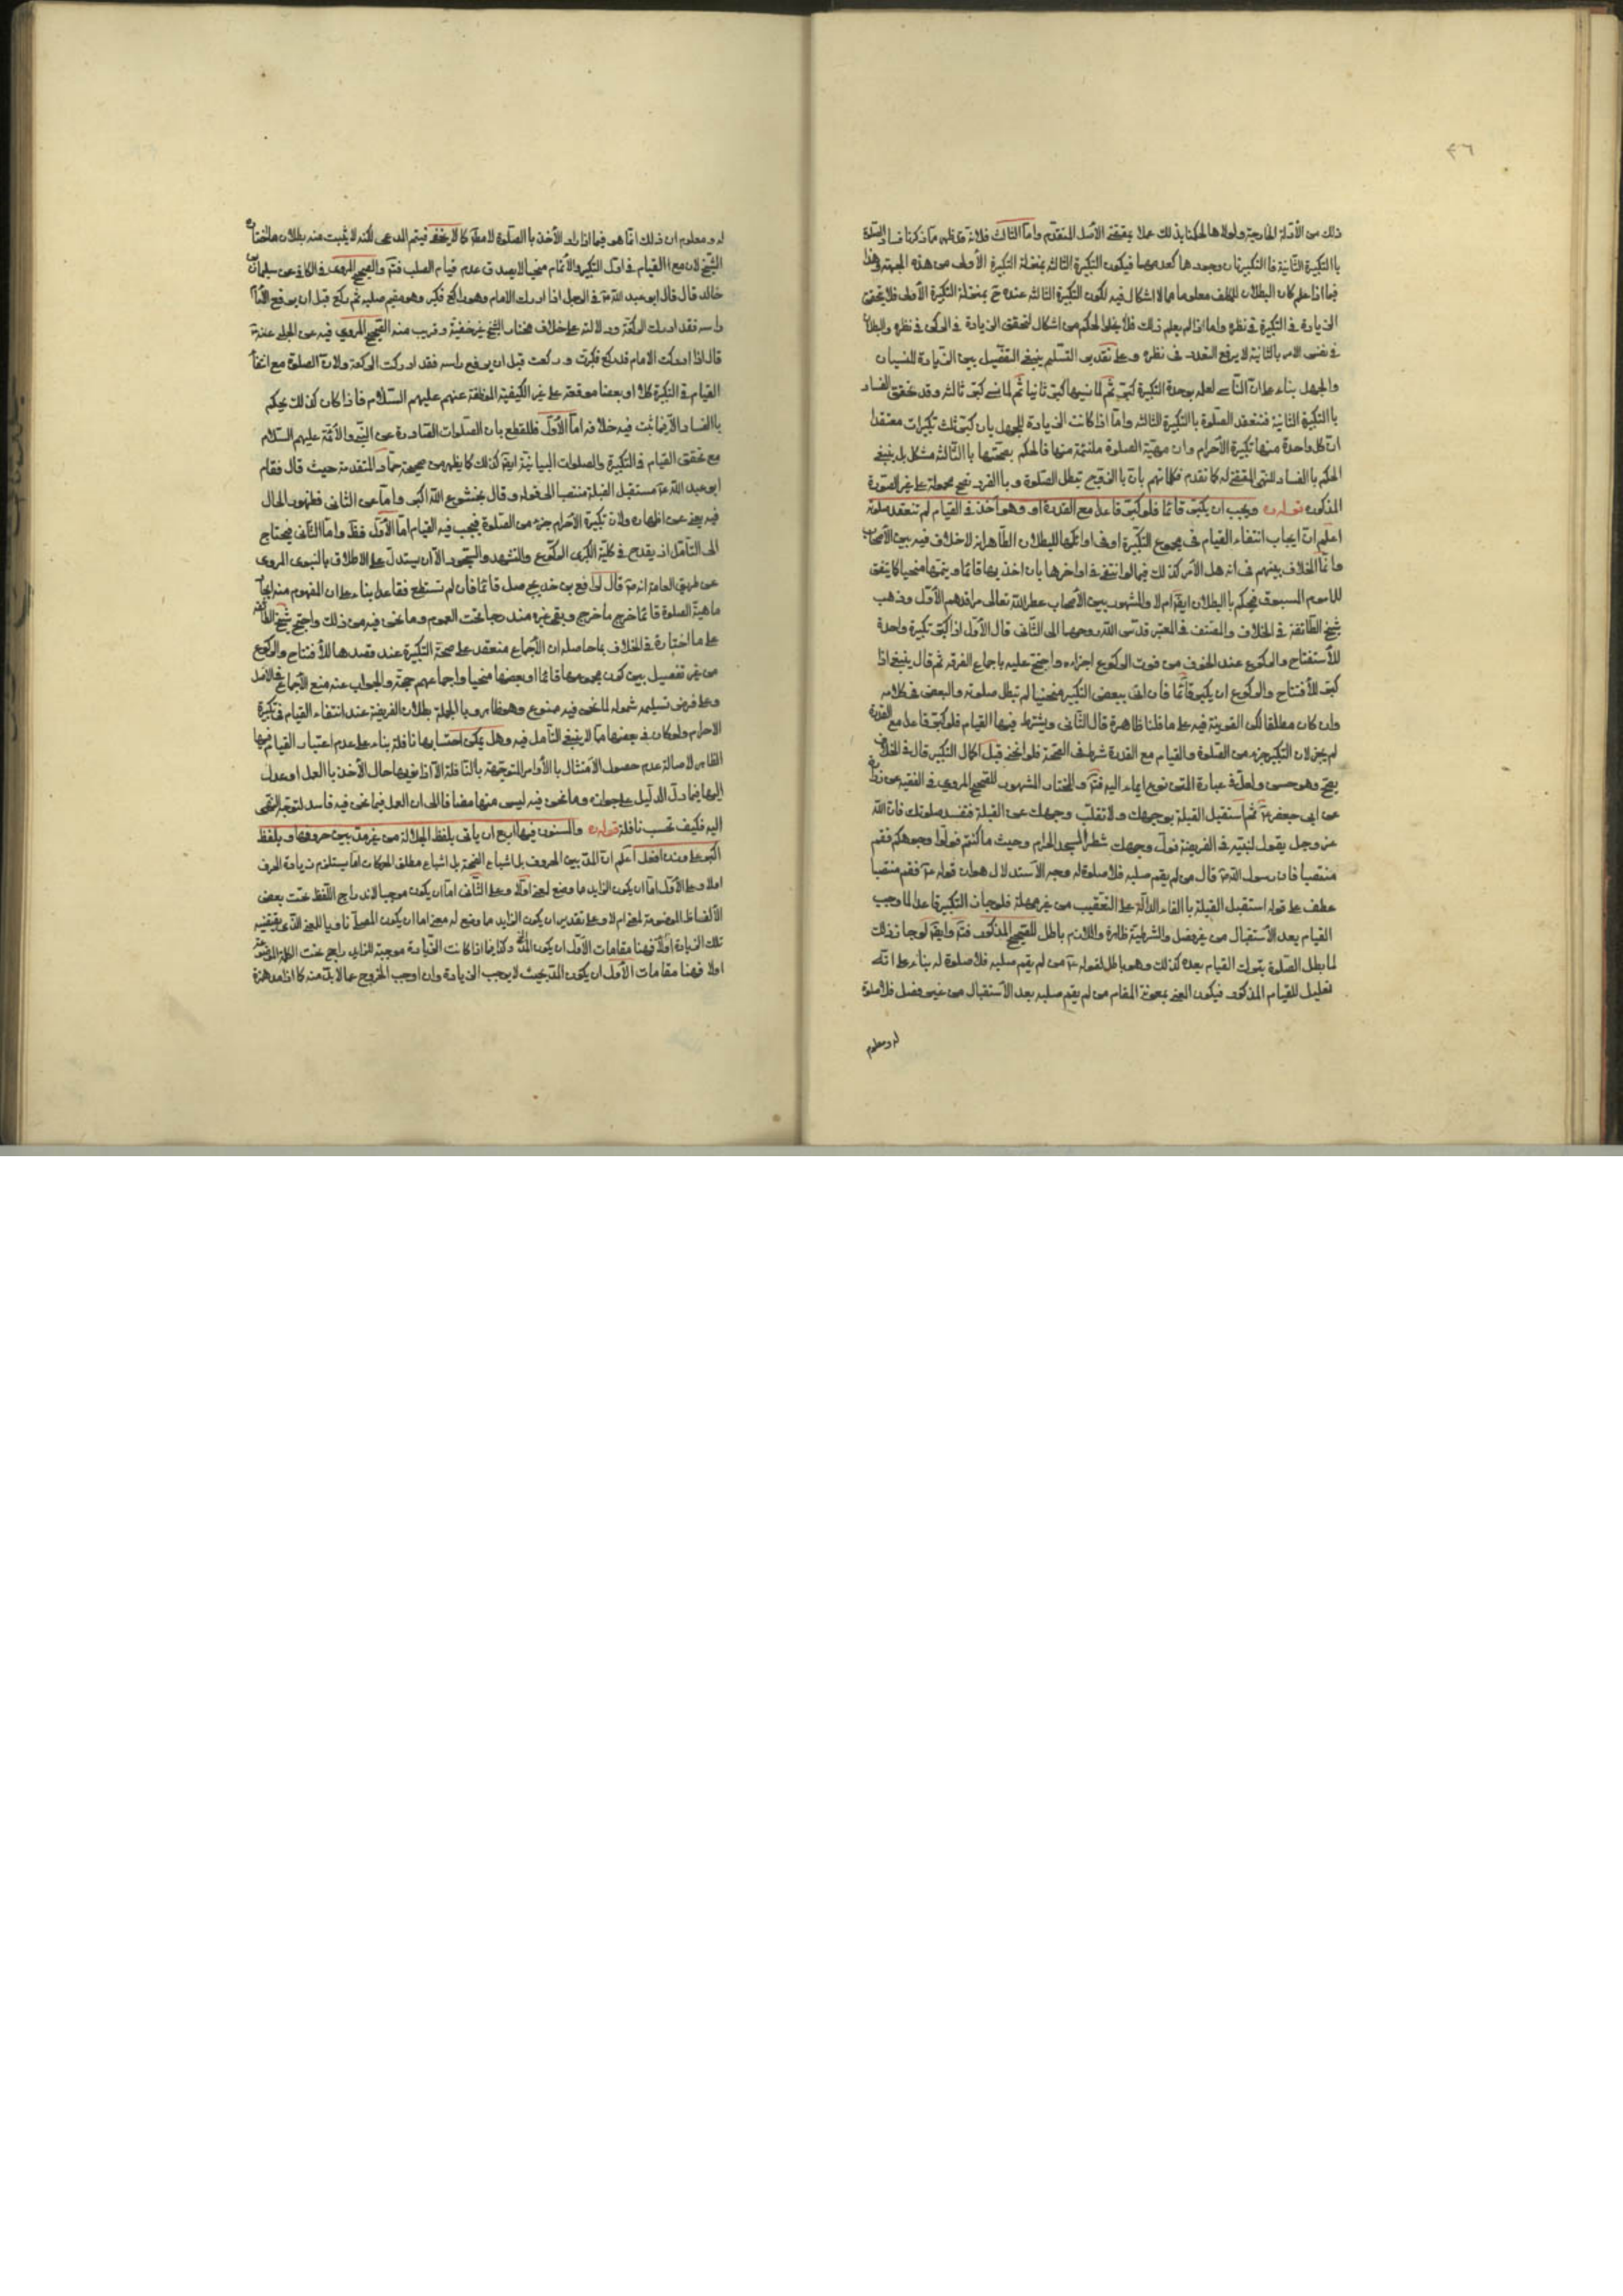 ٤٦
ذلك من الأدلة الخارجية ولولاها لحكمنا بذلك عملا بمقتضى الأصل المتقدم واما الثالث فلانه قد ظهر مما ذكرنا فساد الصلوة
باالتكبيرة الثانية فاالتكبيرتان وجودها كعدمها فيكون التكبيرة الثالثة بمنزلة التكبيرة الأولى من هذه الجهة وهذا
فيما اذا علم كان البطلان للمكلف معلوما مما لا اشكال فيه لكون التكبيرة الثالثة عنده ح بمنزلة التكبيرة الأولى فلا يتحقق
الزيادة في التكبيرة في نظره واما اذا لم يعلم ذلك فلا يخلوا الحكم من اشكال لتحقق الزيادة في الركن في نظره والبطلان
في نفس الامر بالثانية لا يرفع التعدد في نظره وعلى تقدير التسليم ينبغي التفصيل بين الزيادة للنسيان
والجهل بناء على ان الناسي لعله بوحدة التكبيرة كبّر ثم لما نسيها كبّر ثانيا ثم لما نسي كبّر ثالثه وقد تحقق الفساد
باالتكبيرة الثانية فتنعقد الصلوة باالتكبيرة الثالثه واما اذا كانت الزيادة للجهل بان كبّر ثلث تكبيرات معتقدا
ان كل واحدة منها تكبيرة الأحرام وان مهيّة الصلوة ملتئمة منها فالحكم بصحتها باالثالثه مشكل بل ينبغي
الحكم باالفساد للنهي المقتضي له كما تقدم فكلامهم بان باالزوج تبطل الصلوة و باالفرد تصح محمولة على غير الصورة
المذكوره قوله ره ويجب ان يكبّر قائما فلو كبّر قاعدا مع القدرة او وهو آخذ في القيام لم تنعقد صلوته
اعلم ان ايجاب انتفاء القيام في مجموع التكبيرة او في اوائلها للبطلان الظاهر انه لا خلاف فيه بين الأصحاب
وانما الخلاف بينهم في انه هل الأمر كذلك فيما لو انتفى في اواخرها بان اخذ بها قائما ويتمها منحنيا كما يتفق
للماموم المسبوق فيحكم باالبطلان ايضا ام لا والمشهور بين الأصحاب عطر الله تعالى مراقدهم الأول وذهب
شيخ الطائفة في الخلاف والمصنف في المعتبر قدس الله روحهما الى الثاني قال الأول اذا كبّر تكبيرة واحدة
للأستفتاح والركوع عند الخوف من فوت الركوع اجزاه واحتج عليه باجماع الفرقه ثم قال ينبغي اذا
كبّر للأفتتاح والركوع ان يكبّر قائما فان اتى ببعض التكبير منحنيا لم تبطل صلوته والبعض في كلامه
وان كان مطلقا لكن القرينة فيه على ما قلنا ظاهرة قال الثاني ويشترط فيها القيام فلو كبّر قاعدا مع القدرة
لم يجز لان التكبير جزء من الصلوة والقيام مع القدرة شرط في الصحة فلو انحنى قبل اكمال التكبير قال في الخلاف
يصح وهو حسن ولعل في عبارة المتن نوع ايماء اليه فتم والمختار المشهور للصحيح المروي في الفقيه عن زرارة
عن ابي جعفر ع ثم استقبل القبلة بوجهك ولا تقلب وجهك عن القبلة فتفسد صلوتك فان الله
عز وجل يقول لنبيه في الفريضة فول وجهك شطر المسجد الحرام وحيث ما كنتم فولوا وجوهكم فقم
منتصبا فان رسول الله ص قال من لم يقم صلبه فلا صلوة له وجه الأستدلال هو ان قوله ع فقم منتصبا
عطف على قوله استقبل القبلة باالفاء الدالة على التعقيب من غير مهلة فلو جاز التكبير قاعدا لما وجب
القيام بعد الأستقبال من غير فصل والشرطية ظاهرة واللازم باطل للصحيح المذكور فتم وايضا لو جاز ذلك
لما بطل الصلوة بترك القيام بعده كذلك وهو باطل لقوله ع من لم يقم صلبه فلا صلوة له بناء على انه
تعليل للقيام المذكور فيكون المعنى بمعونة المقام من لم يقم صلبه بعد الأستقبال من غير فصل فلا صلوة
له ومعلوم
له ومعلوم ان ذلك انما هو فيما اذا اراد الأخذ باالصلوة لا مطلقا كما لا يخفى فيتم المدعى لكنه لا يثبت منه بطلان ما اختاره
الشيخ لان مع القيام في اول التكبير والأتمام منحنيا لا يصدق عدم قيام الصلب فتم والصحيح المروي في الكافي عن سليمان بن
خالد قال قال ابو عبد الله ع في الرجل اذا ادرك الامام وهو راكع فكبر وهو مقيم صلبه ثم ركع قبل ان يرفع الامام
راسه فقد ادرك الركعة ودلالته على خلاف مختار الشيخ غير خفية وقريب منه الصحيح المروي فيه عن الحلبي عنه ع
قال اذا ادركت الامام قد ركع فكبرت وركعت قبل ان يرفع راسه فقد ادركت الركعة ولان الصلوة مع انتفاء
القيام في التكبيرة كلا او بعضا موقعة على غير الكيفية المتلقاة عنهم عليهم السلام فاذا كان كذلك يحكم
باالفساد الا فيما ثبت فيه خلافه اما الأول فللقطع بان الصلوات الصادرة عن النبي والأئمة عليهم السلام
مع تحقق القيام في التكبيرة والصلوات البيانية ايضا كذلك كما يظهر من صحيحة حماد المتقدمة حيث قال فقام
ابو عبد الله ع مستقبل القبلة منتصبا الى قوله وقال بخشوع الله اكبر واما عن الثاني فظهور الحال
فيه يغني عن اظهاره ولان تكبيرة الأحرام جزء من الصلوة فيجب فيه القيام اما الأول فظ واما الثاني فيحتاج
الى التامل اذ يقدح في كلية الكبرى الركوع والتشهد والسجود الا ان يستدل على الاطلاق بالنبوي المروي
عن طريق العامة انه ص قال لرافع بن خديج صل قائما فان لم تستطع فقاعدا بناء على ان المفهوم منه ايجاب
ماهية الصلوة قائما خرج ما خرج وبقي غيره مندرجا تحت العموم وما نحن فيه من ذلك واحتج شيخ الطائفة
على ما اختاره في الخلاف بما حاصله ان الأجماع منعقد على صحة التكبيرة عند قصدها للأفتتاح والركوع
من غير تفصيل بين كون مجموعها قائما او بعضها منحنيا واجماعهم حجة والجواب عنه منع الأجماع في الاصل
وعلى فرض تسليمه شموله لما نحن فيه ممنوع وهو ظاهر وبالجملة بطلان الفريضة عند انتفاء القيام في تكبيرة
الاحرام ولو كان في بعضها مما لا ينبغي التأمل فيه وهل يمكن احتسابها نافلة بناء على عدم اعتبار القيام فيها
الظاهر لاصالة عدم حصول الأمتثال باالأوامر المتوجهة باالنافلة الا اذا نويها حال الأخذ باالعمل او عدل
اليها فيما دل الدليل على جوازه وما نحن فيه ليس منها مضافا الى ان العمل فيما نحن فيه فاسد لتوجه النهي
اليه فكيف تحسب نافلة قوله ره والمسنون فيها اربع ان ياتي بلفظ الجلالة من غير مد بين حروفها و بلفظ
اكبر على وزن افعل اعلم ان المد بين الحروف بل اشباع الفتحة بل اشباع مطلق الحركات اما يستلزم زيادة الحرف
اولا وعلى الأول اما ان يكون الزايد ما وضع لمعنى اولا وعلى الثاني اما ان يكون موجبا لاندراج اللفظ تحت بعض
الألفاظ الموضوعة لمعنى ام لا وعلى تقدير ان يكون الزايد ما وضع له معنى اما ان يكون المصلي ناويا للمعنى الذي يقتضيه
تلك الزيادة اولا فهنا مقامات الأول ان يكون المد وكذا فيما اذا كانت الزيادة موجبة للاندراج تحت الكلمة الموضوعة
اولا فهنا مقامات الأول ان يكون المد بحيث لا يوجب الزيادة وان اوجب الخروج عما لا بد منه كما اذا مد همزة